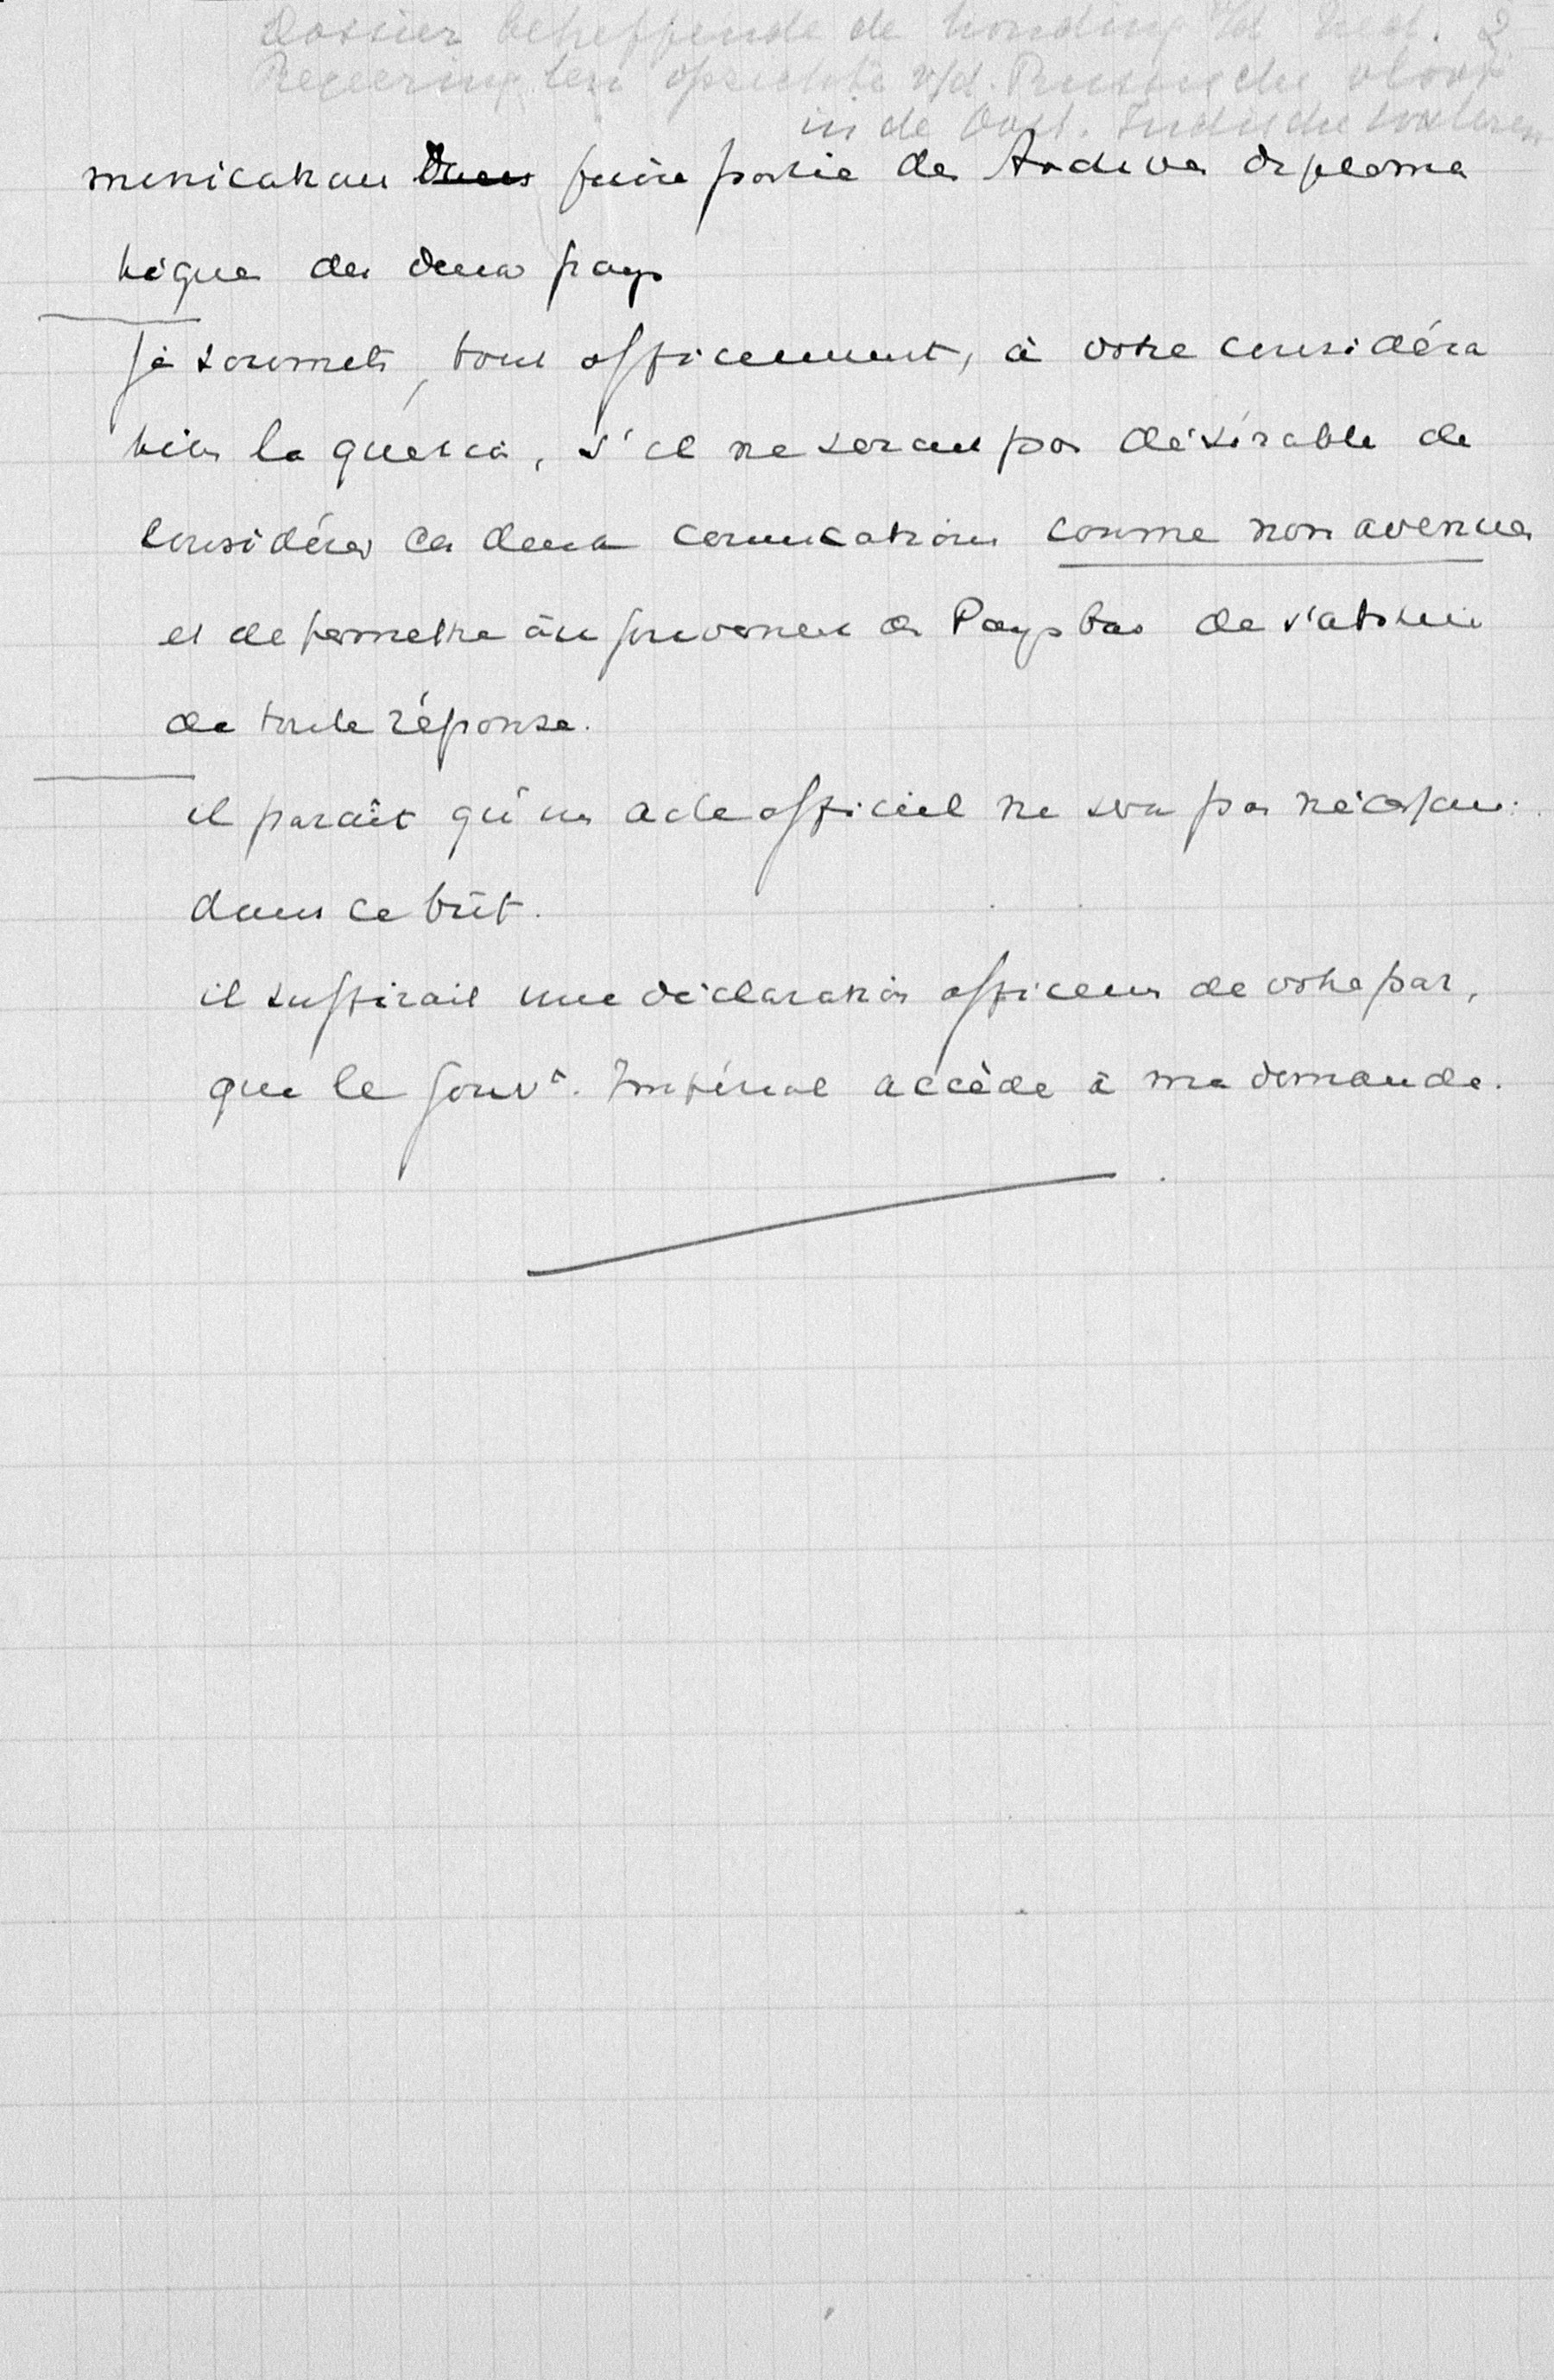 Dossier betreffende de houding v/d Ned. 2
Regeering ten opzichte v/d. Russische vloot
in de Oost. Indische wateren
munications faire partie des Archives diploma
tiques des deux pays
Je soumets, tout officieusement, à votre considéra
tion la question, s'il ne serait pas désirable de
considérer ces deux comunications comme non avenues
et de permettre au gouvernement des Pays bas de s'abstenir
de toute réponse.
il paraît qu'un acte officiel ne sera pas nécessaire
dans ce bût.
il suffirait une déclaration officieuse de votre part,
que le Gouvt. Impérial accède à ma demande.